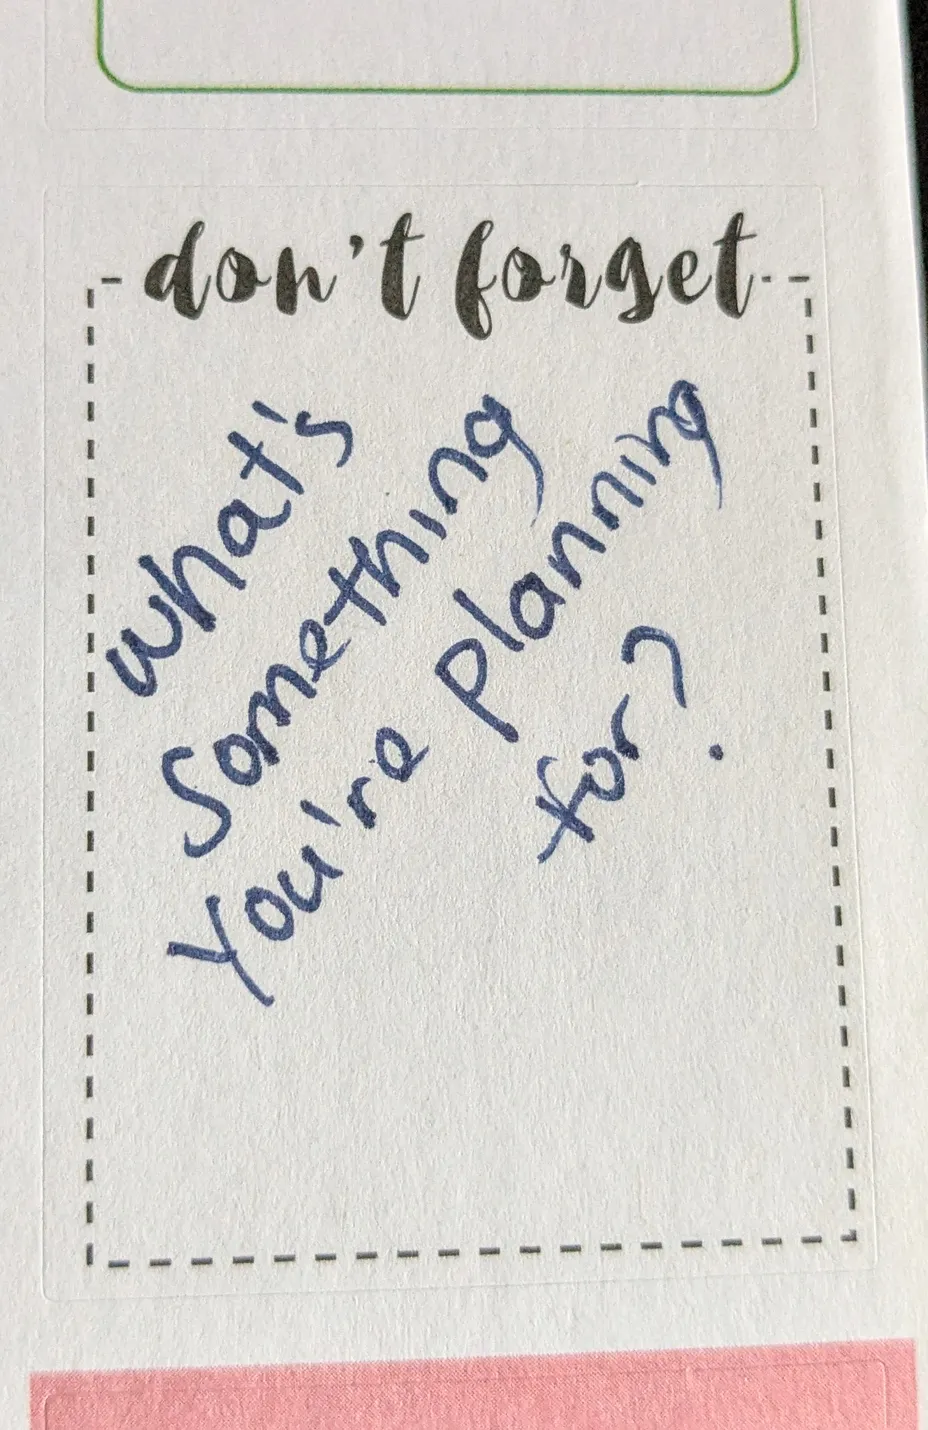 don't forget
What's
Something
You're planning
for?